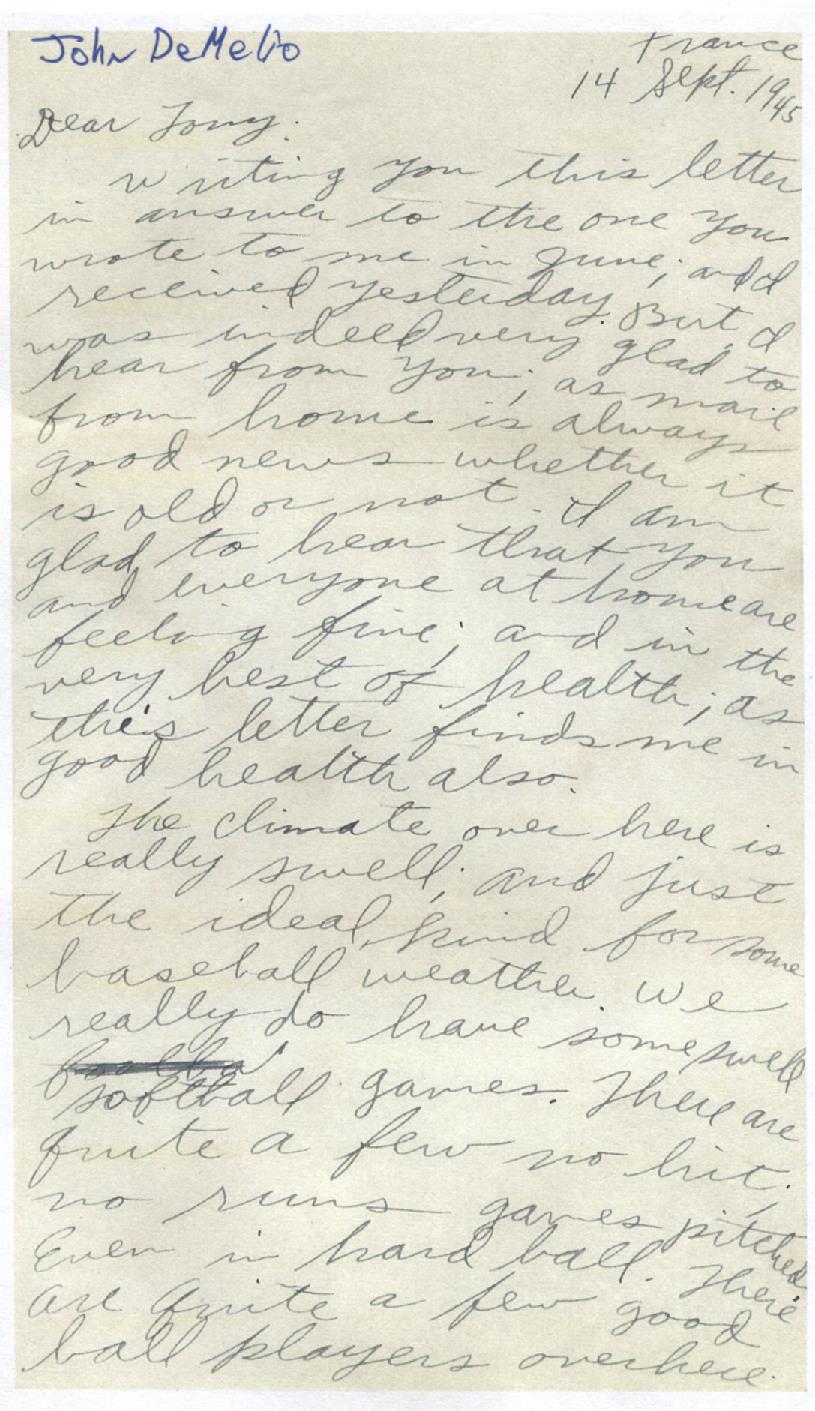 John DeMelio
France
14 Sept. 1945
Dear Tony:
Writing you this letter
in answer to the one you
wrote to me in June; and I
received yesterday. But I
was indeed very glad to
hear from you; as mail
from home is always
good news whether it
is old or not. I am
glad to hear that you
and everyone at home are
feeling fine; and in the
very best of health; as
this letter finds me in
good health also.
The climate over here is
really swell; and just
the ideal kind for some
baseball weather. We
really do have some swell
softball games. There are
quite a few no hit;
no runs games pitched
Even in hard ball. There
are quite a few good
ball players over here.